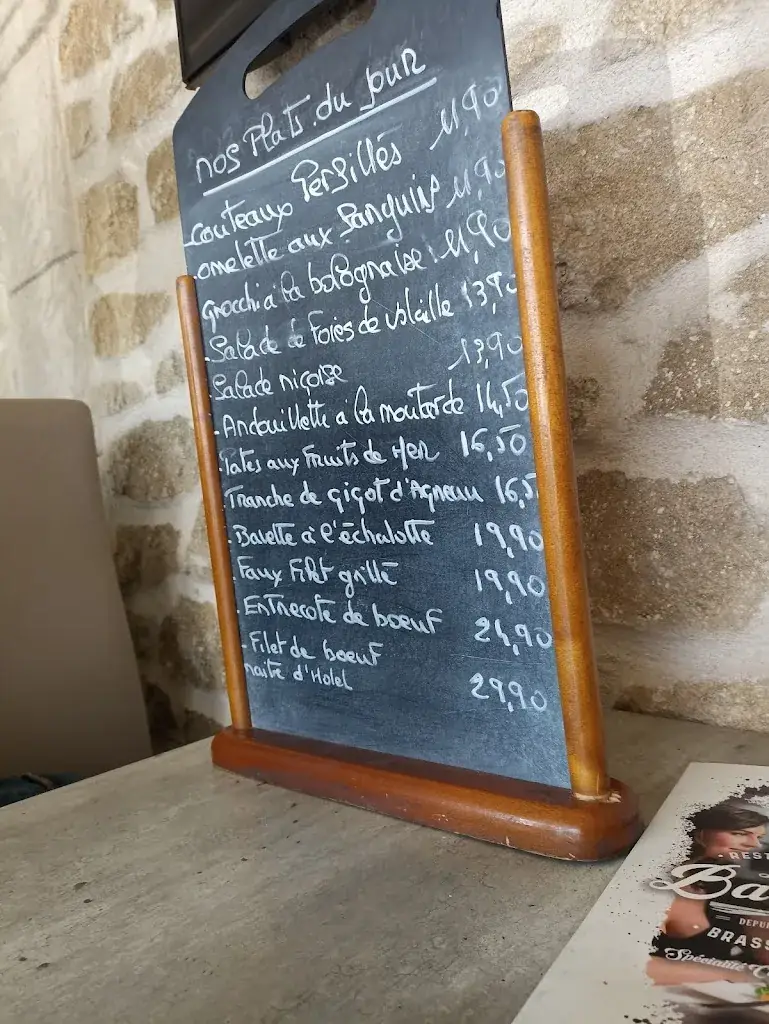 nos Plats du jour
-couteaux Persillés 11,90
-omelette aux Sanguins 11,90
gnocchi a la bolognaise 11,90
-Salade de Foies de volaille 13,90
Salade niçoise 13,90
-Andouillette a la moutarde 14,50
-Pates aux Fruits de Mer 16,50
-Tranche de gigot d'Agneau 16,5
-Bavette à l'échalotte 19,90
-Faux Filet grillé 19,90
-Entrecote de boeuf 24,90
-Filet de boeuf
maitre d'Hotel 29,90
REST
Ba
DEPUI
BRASS
Spécialité